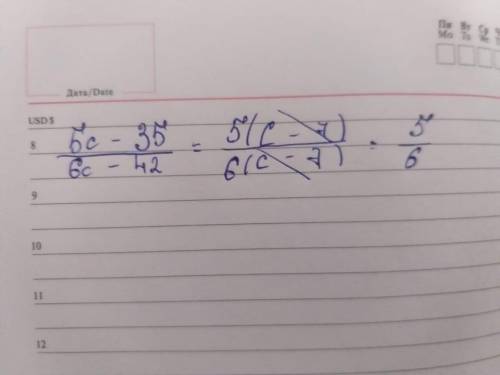 Пн Вт Ср
Mo Tu We
Дата/Date
USD $
8
5c - 35 / 6c - 42 = 5(c - 7) / 6(c - 7) = 5 / 6
9
10
11
12